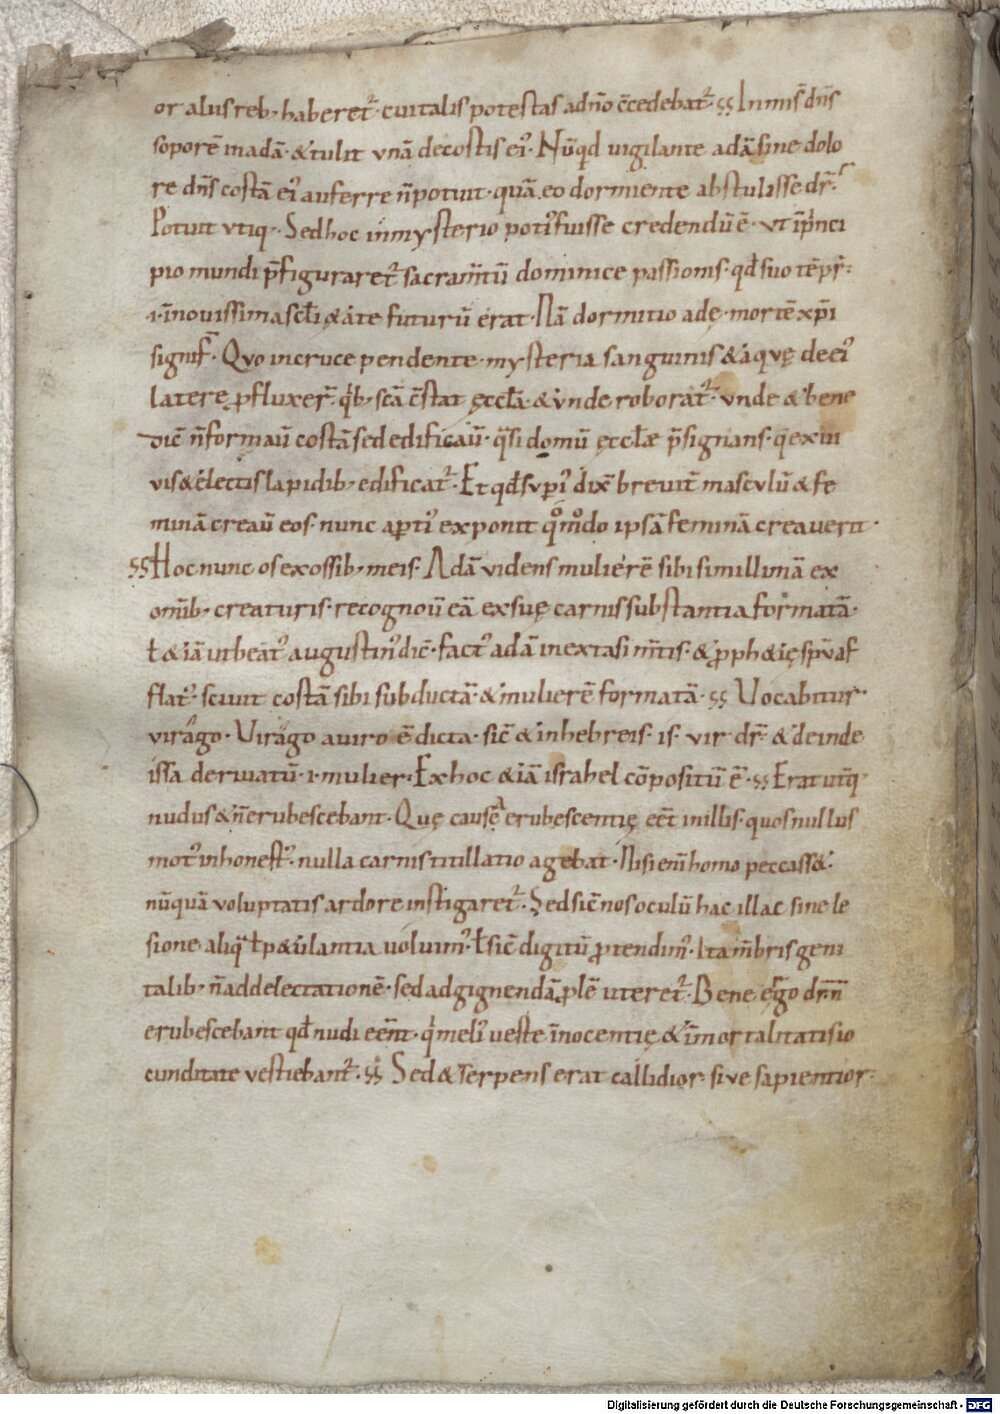 or aliis reb; haberet᷑. cui talis potestas a dño c̄cedebat᷑. ss Inmis̄ dn̄s
soporē in adā. & tulit vnā de costis ei᷒. Nūqd vigilante adā sine dolo
re dn̄s costā ei᷒ auferre n̄ potuit. quā eo dormiente abstulisse dr̄.
Potuit vtiq;. Sed hoc in mysterio poti᷒ fuisse credendū ē. vt ī pͥnci
pio mundi p̄figuraret᷑ sacram̄tū dominice passionis. qđ suo tēpr̄.
.i. ī nouissima scłi &ate futurū erat. Nā dormitio adę. mortē xp̄i
signif̄. Quo in cruce pendente. mysteria sanguinis & aquę de ei᷒
latere ꝓfluxer̄. qͥb; scā c̄stat ęccłā. & vnde roborat᷑. vnde & bene
dic̄ n̄ formauū costā sed edificaū. qͣsi domū ęccłæ p̄signans. q̄ ex ui
uis & electis lapidib; edificat᷑. Et qđ supi᷒ dix̄ breuit̄ masculū & fe
minā creaū eos. nunc apti᷒ exponit qͦmͦdo ipsā feminā creauerit.
ss Hoc nunc os ex ossib; meis. Adā videns mulierē sibi simillimā ex
omīb; creaturis. recognoū eā ex suę carnis substantia formatā.
ł &iā ut beat᷒ augustin᷒ dic̄. fact᷒ adā in extasi m̄tis. & ꝓph&ię spū af
flat᷒. sciuit costā sibi subductā. & mulierē formatā. ss Uocabitur
virago. Virago a uiro ē dicta. sic̄ & in hebreis. is. vir dr̄. & deinde
issa deriuatū .i. mulier. Ex hoc &iā israhel cōpositū ē. ss Erat utq̄;
nudus & n̄ erubescebant. Quę causa erubescentię eēt in illis. quos nullus
mot᷒ inhonest᷒. nulla carnis titillatio agebat. Nisi enī homo peccass&.
nūquā voluptatis ardore instigaret᷑. Sed sic̄ nos oculū hac illac sine le
sione aliqͣ ł p&ulantia uoluim᷒. ł sic̄ digitū ꝓtendim᷒. Ita m̄bris geni
talib; n̄ ad delectationē. sed ad gignendā ꝓlē uteret᷑. Bene ergo
erubescebant qđ nudi eēnt. qͥ meli᷒ ueste īnocentię & īmortalitatis io
cunditate vestiebant᷑. ss Sed & serpens erat callidior. siue sapientior.
Digitalisierung gefördert durch die Deutsche Forschungsgemeinschaft - DFG